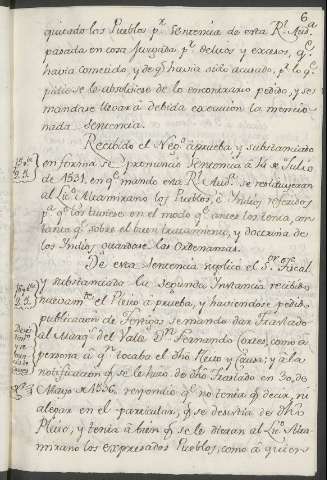 6
quitado los Pueblos pr. Sentencia de esta Rl. Auda.
pasada en cosa Juzgada pr. delitos y excesos, qe.
havia cometido, y de qe. havia sido acusado, pr. lo qe.
pidio se le absolviese de lo encontrario pedido, y se
mandase llevar à debida execucion la mencio-
nada Sentencia.
Recibido el Nego. à prueba, y substanciado
en forma se pronunciò Sentencia à 14 de Julio
de 1531, en qe. mando esta Rl. Auda. se restituyeran
al Lico. Altamirano los Pueblos, è Indios referidos
pa. qe. los tuviese en el modo qe. antes los tenia, con
tanto qe. sobre el buen tratamiento, y doctrina de
los Indios guardase las Ordenanzas.
De esta Sentencia suplicò el Sor. Fiscal,
y substanciada la segunda Instancia recibido
nuevamte. el Pleito à prueba, y haviendose pedido
publicacion de Testigos se mando dar Traslado
al Marqs. del Valle Dn. Fernando Cortes, como à
persona à qn. tocaba el dho Pleito y Causa: y à la
notificacion qe. se le hizo de dho Traslado en 30, de
Mayo de 1536, respondiò qe. no tenia qe. decir, ni
alegar en el particular; qe. se desistia de dho
Pleito, y tenia à bien qe. se le dieran al Lico. Alta-
mirano los expresados Pueblos, como à quien